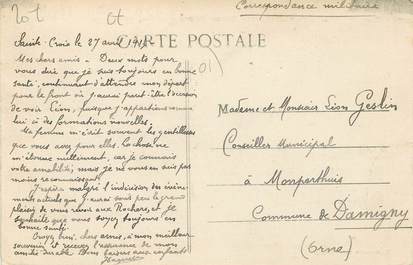 Correspondance militaire
CARTE POSTALE
Sainte Croix le 27 avril
Mes chers amis - Deux mots pour
vous dire que je suis toujours en bonne
santé, continuant d'attendre mon départ
pour le front où j'aurai peut-être l'occasion
de voir Léon, puisque j'appartiens comme
lui à des formations nouvelles.
Ma femme m'écrit souvent les gentillesses
que vous avez pour elles. La chose ne
m'étonne nullement, car je connais
votre amabilité, mais je ne vous en suis pas
moins reconnaissant.
J'espère malgré l'indécision des événe-
ments actuels que j'aurai sous peu le grand
plaisir de vous revoir aux Rochers, et je
souhaite que vous soyez toujours en
bonne santé.
Croyez bien, chers amis, à mon meilleur
souvenir et recevez l'assurance de mon
amitié durable. Bons baisers aux enfants
Madame et Monsieur Léon Geslin
Conseiller Municipal
à Montperthuis
Commune de Damigny
(Orne)